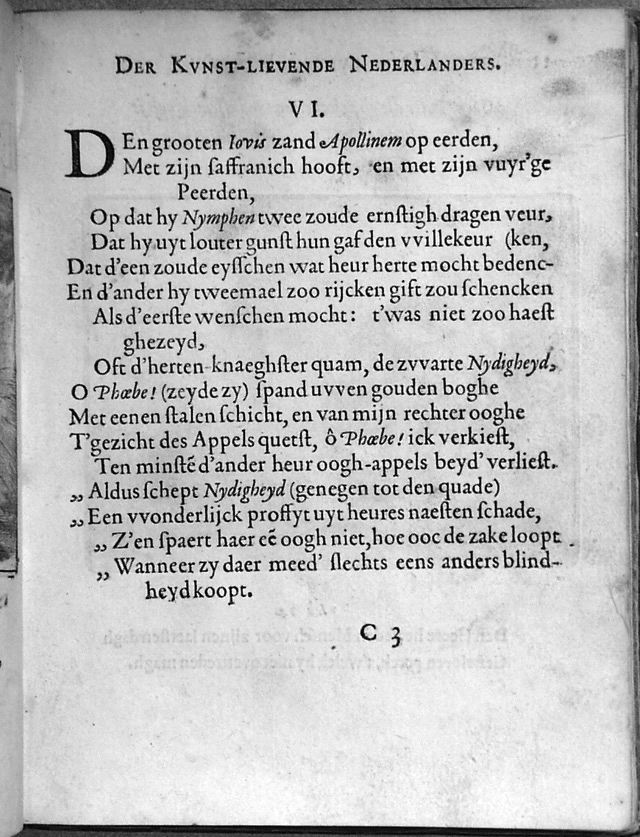 DER KVNST-LIEVENDE NEDERLANDERS.
VI.
DEn grooten Iovis zand Apollinem op eerden,
Met zijn ſaffranich hooft, en met zijn vuyr'ge
Peerden,
Op dat hy Nymphen twee zoude ernſtigh dragen veur,
Dat hy uyt louter gunſt hun gaf den vvillekeur (ken,
Dat d'een zoude eyſſchen wat heur herte mocht bedenc-
En d'ander hy tweemael zoo rijcken gift zou ſchencken
Als d'eerſte wenſchen mocht: t'was niet zoo haeſt
ghezeyd,
Oft d'herten-knaeghſter quam, de zvvarte Nydigheyd,
O Phœbe! (zeyde zy) ſpand uvven gouden boghe
Met eenen ſtalen ſchicht, en van mijn rechter ooghe
T'gezicht des Appels quetſt, ô Phœbe! ick verkieſt,
Ten minſtẽ d'ander heur oogh-appels beyd' verlieſt.
„ Aldus ſchept Nydigheyd (genegen tot den quade)
„ Een vvonderlijck proffyt uyt heures naeſten ſchade,
„ Z'en ſpaert haer eẽ oogh niet, hoe ooc de zake loopt
„ Wanneer zy daer meed' ſlechts eens anders blind-
heyd koopt.
C 3